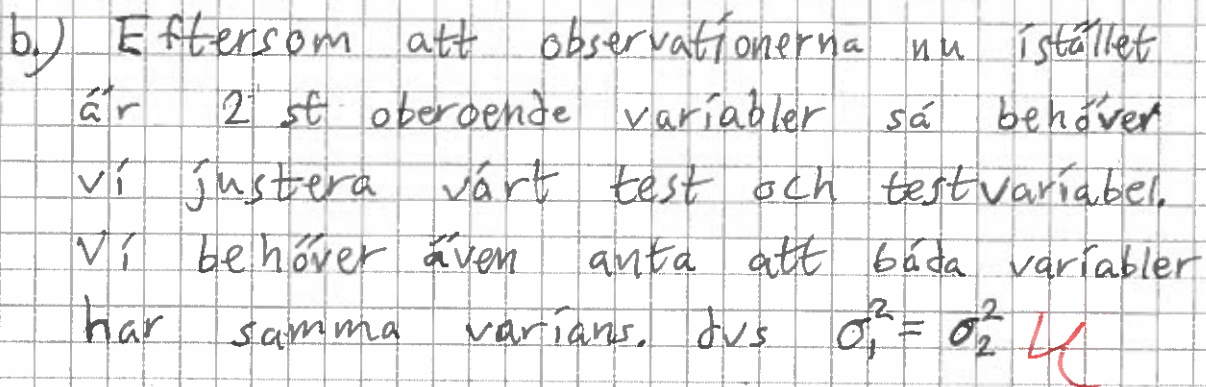 b.) Eftersom att observationerna nu istället
är 2 st oberoende variabler så behöver
vi justera vårt test och testvariabel.
Vi behöver även anta att båda variabler
har samma varians. dvs σ₁² = σ₂²